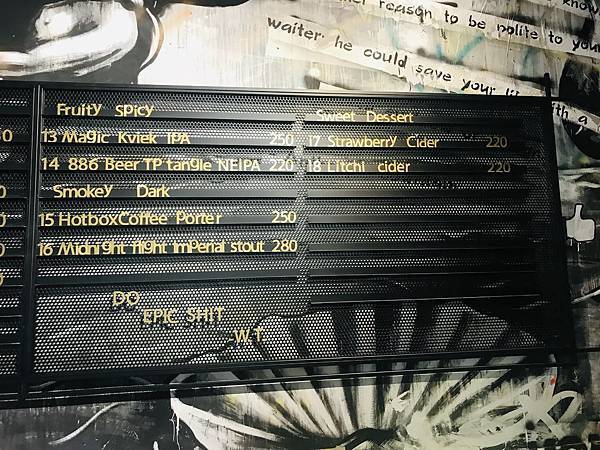 reason to be polite to your
waiter. he could save your
with a
Fruity Spicy
13 Magic Kviek IPA 250
14 886 Beer TP tangle NEIPA 220
Smokey Dark
15 HotboxCoffee Porter 250
16 Midnight flight imperial stout 280
Sweet Dessert
17 Strawberry Cider 220
18 Litchi cider 220
DO
EPIC SHIT
-W.T